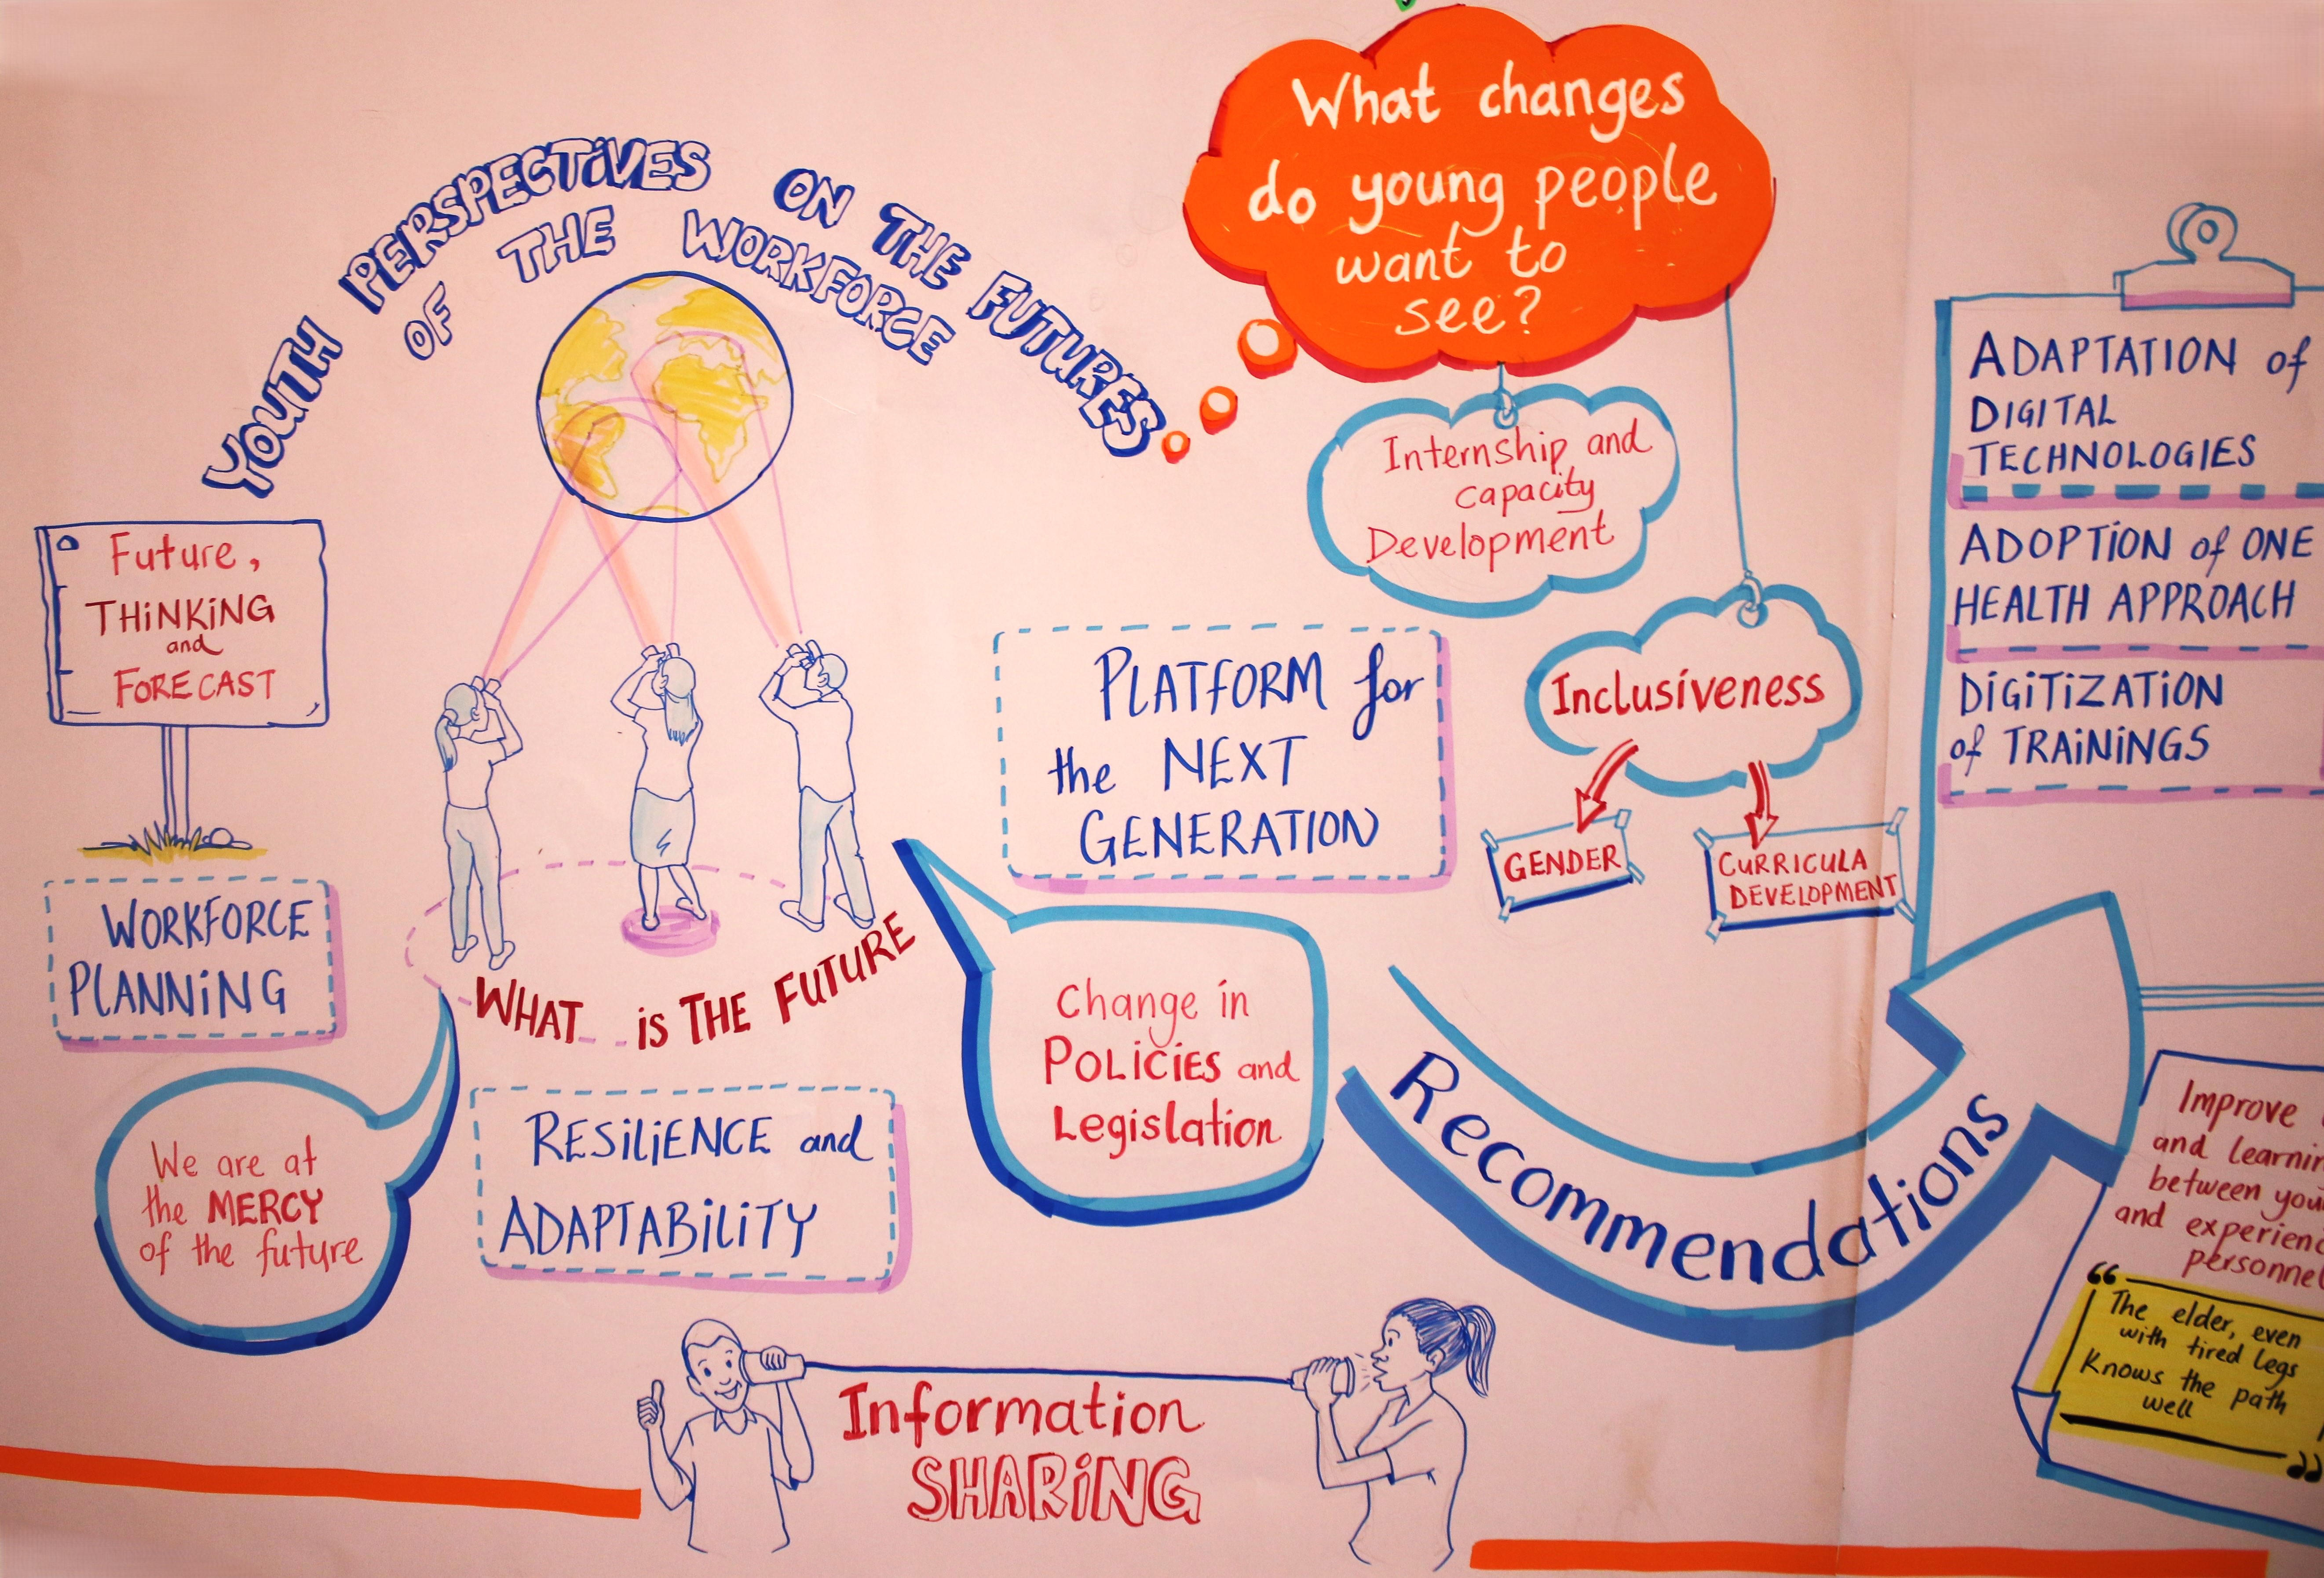 YOUTH PERSPECTIVES ON THE FUTURES
OF THE WORKFORCE
Future,
THINKING
and
FORECAST
WORKFORCE
PLANNING
We are at
the MERCY
of the future
WHAT is THE FUTURE
RESILIENCE and
ADAPTABILITY
PLATFORM for
the NEXT
GENERATION
Change in
POLICIES and
Legislation
Information
SHARING
What changes
do young people
want to
see?
Internship and
capacity
Development
Inclusiveness
GENDER
CURRICULA
DEVELOPMENT
Recommendations
ADAPTATION of
DIGITAL
TECHNOLOGIES
ADOPTION of ONE
HEALTH APPROACH
DIGITIZATION
of TRAININGS
Improve
and
between
and
personnel
“The elder, even
with tired legs
Knows the path
well”